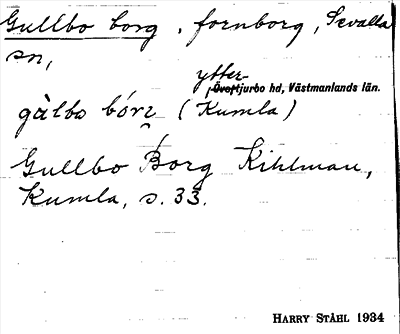 Gullbo borg, fornborg, Sevalla
sn,
ytter-
Övertjurbo hd, Västmanlands län.
gàlbo bórz (Kumla)
Gullbo Borg Kihlman,
Kumla, s. 33.
HARRY STÅHL 1934